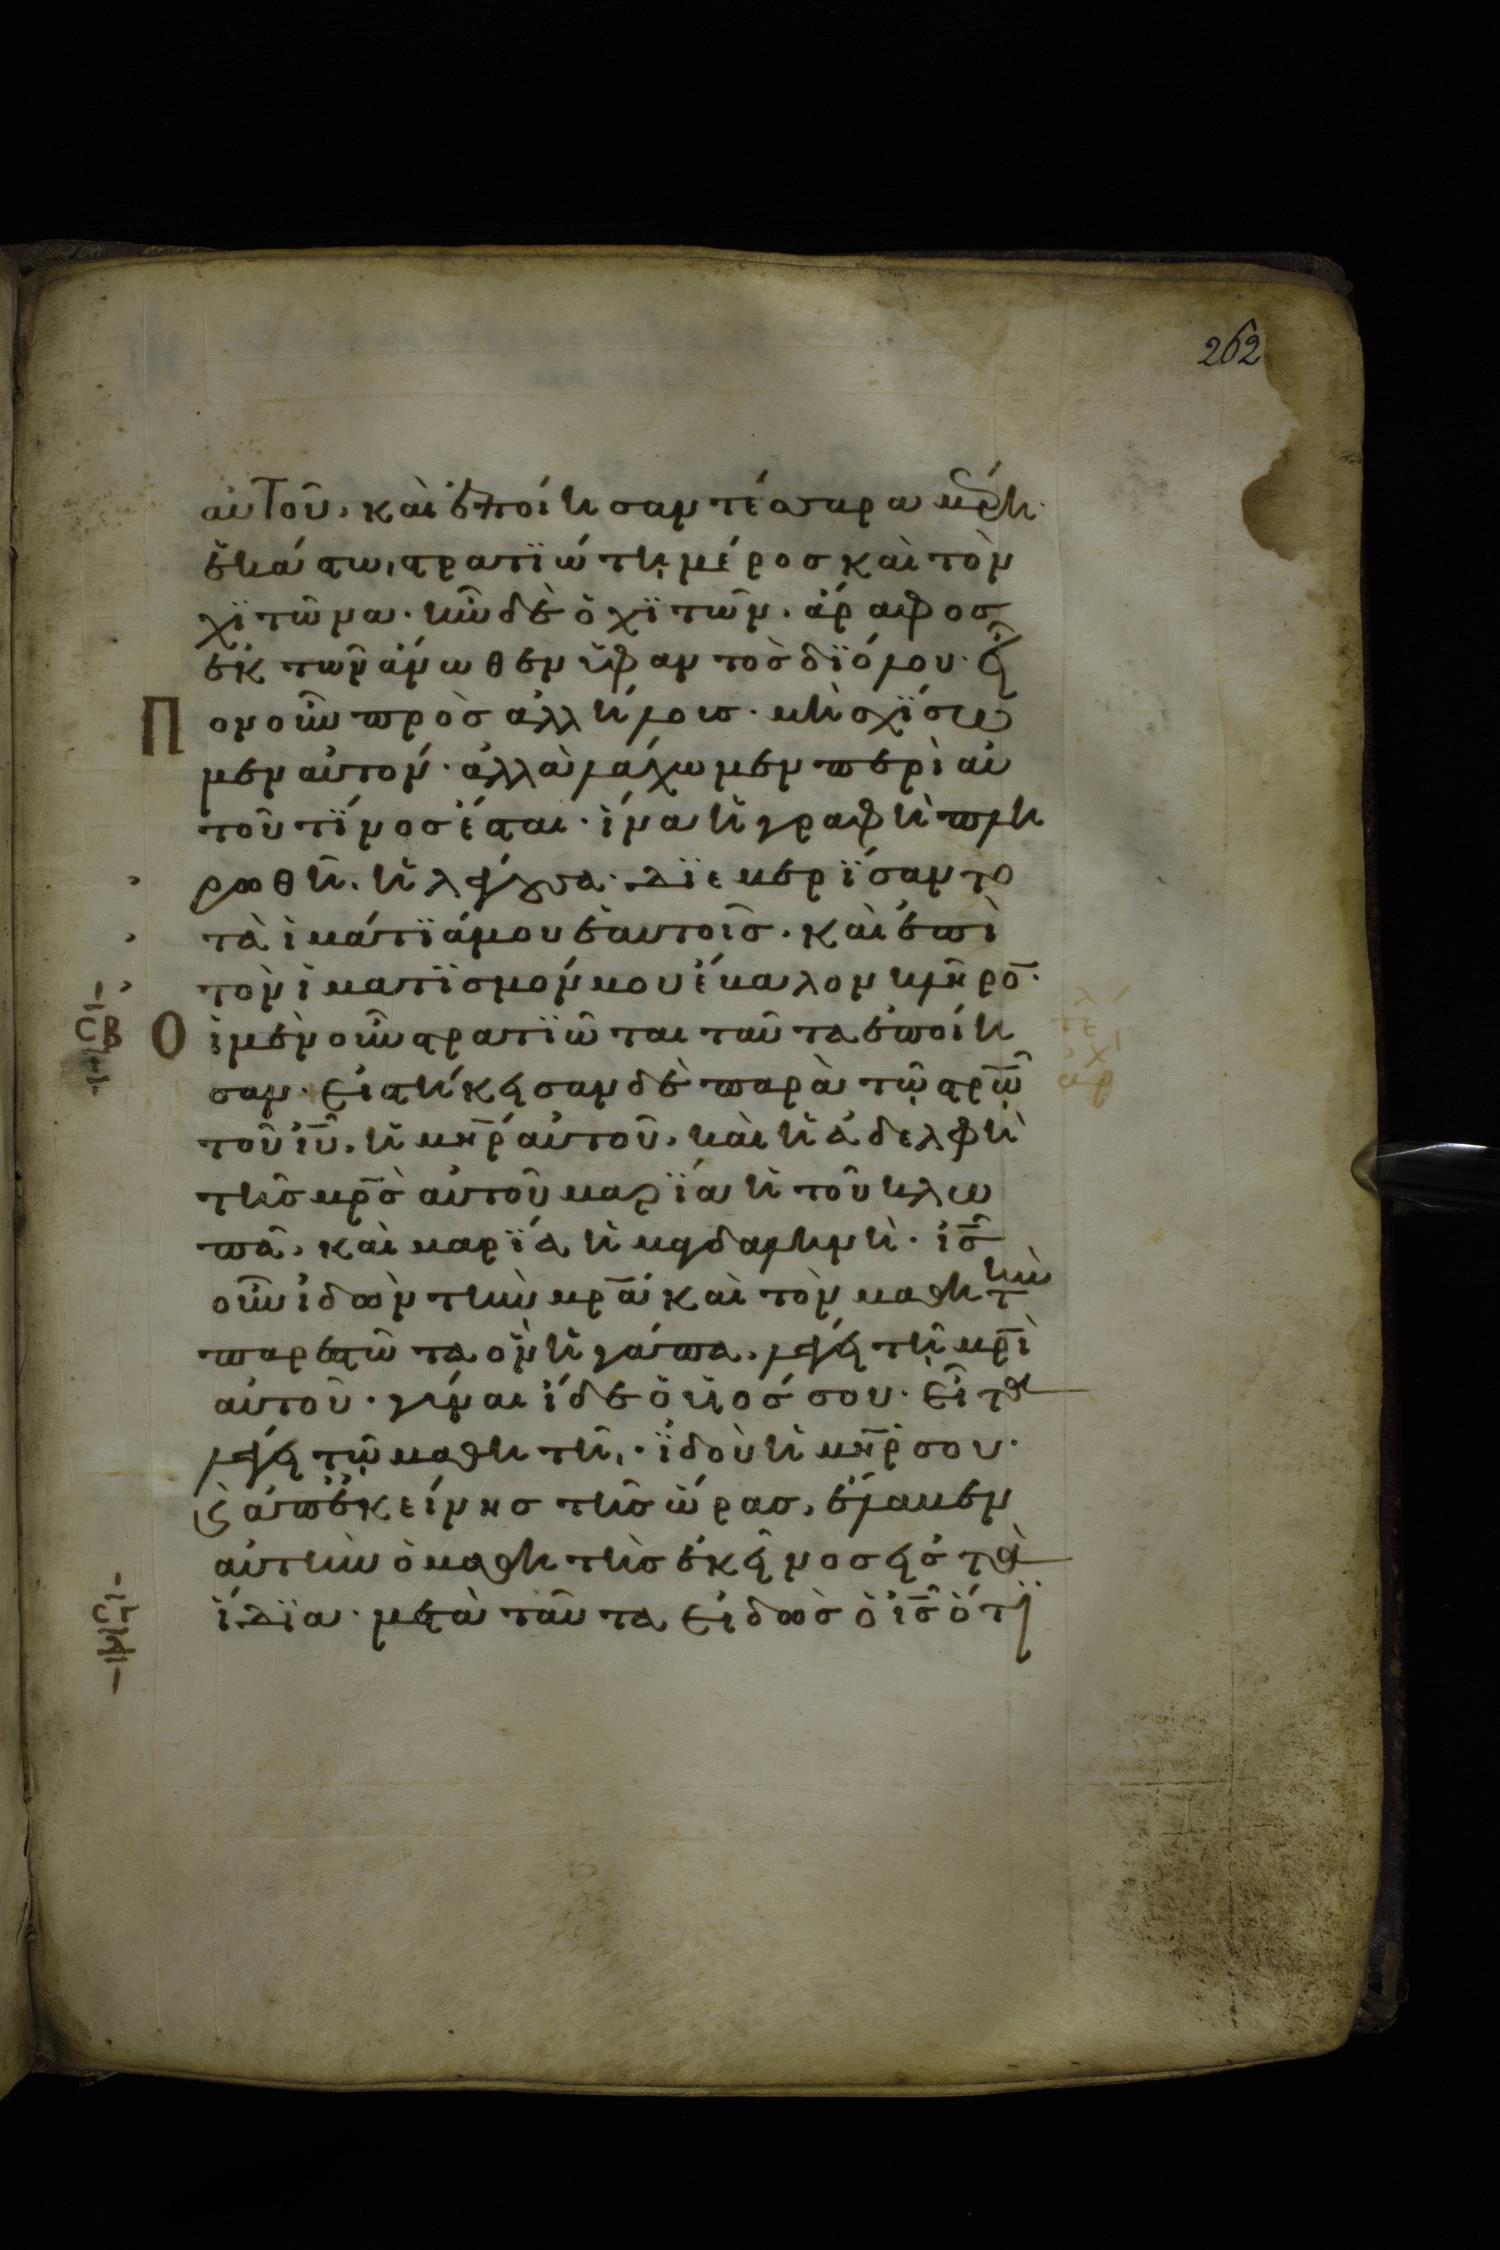 262
αὐτοῦ, καὶ ἐποίησαν τέσσαρα μέρη·
ἑκάστω, στρατϊώτη μέρος καὶ τὸν
χϊτῶνα· ἦν δὲ ὁ χϊτῶν, ἄραφος
ἐκ τῶν ἄνωθεν ὑφαντὸς δϊόλου· εἶ
Πον οὖν πρὸς ἀλλήλοις· μὴ σχίσω
μεν αὐτόν· ἀλλὰ λάχωμεν περὶ αὐ
τοῦ τίνος ἔσται· ἵνα ἡ γραφὴ πλη
ρωθῆ, ἡ λέγουσα· Δϊεμερϊσαντο
τὰ ἱμάτϊά μου ἑαυτοῖς, καὶ ἐπὶ
τὸν ἱματϊσμόν μου ἔβαλον κλῆρο̅·
CB Οἱ μὲν οὖν στρατϊῶται ταῦτα ἐποίη
σαν· εἱστήκεισαν δὲ παρὰ τῷ στρ̅ῶ
τοῦ ι̅υ̅, ἡ μη̅ρ αὐτοῦ, καὶ ἡ ἀδελφὴ
τῆς μρ̅ς αὐτοῦ μαρϊα ἡ τοῦ κλω
πᾶ, καὶ μαρϊα ἡ μαγδαληνὴ· ι̅ς̅
οὖν ἰδὼν τὴν μρ̅α καὶ τὸν μαθητὴν
παρεστῶτα ὃν ἠγάπα, λέγει τῆ μρ̅ι
αὐτοῦ· γύναι ἴδε ὁ υἱός σου· εἶτα
λέγει τῷ μαθητῆ,· ϊδοὺ ἡ μη̅ρ σου·
ϗ ἀπ' ἐκείνης τῆς ὥρας, ἔλαβεν
αὐτὴν ὁ μαθητὴς ἐκεῖνος εἰς τὰ
ἴδϊα· μετὰ ταῦτα εἰδὼς ὁ ι̅ς̅ ὅτϊ